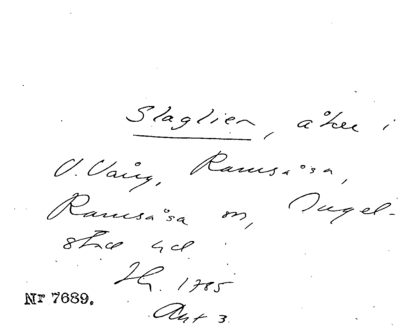 Slaglien, åker i
V. Vång, Ramsåsa,
Ramsåsa sn, Ingel-
stad hd.
Hg. 1785
Akt 3.
Nr 7689.